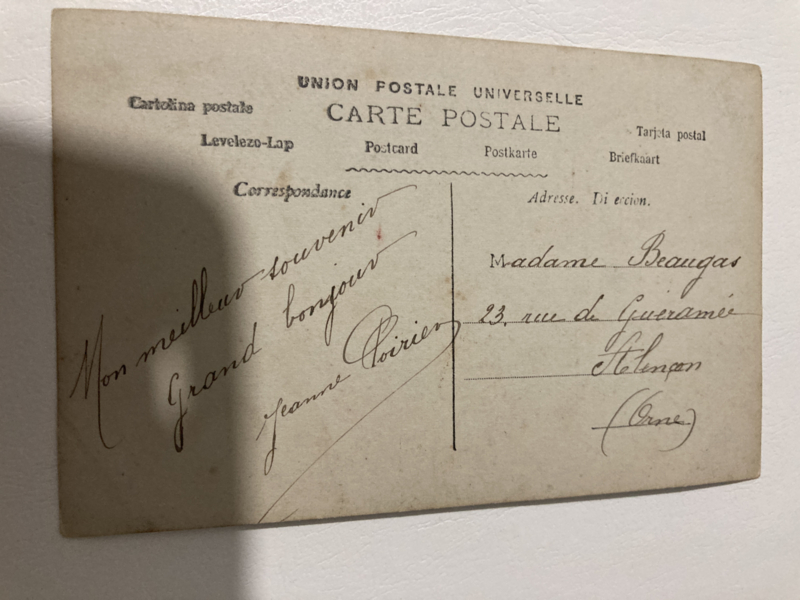 UNION POSTALE UNIVERSELLE
CARTE POSTALE
Cartolina postale
Tarjeta postal
Levelezo-Lap
Postcard
Postkarte
Briefkaart
Correspondance
Adresse. Di eccion.
Mon meilleur souvenir
Grand bonjour
Jeanne Poirier
Madame Beaugas
23, rue de Guéramée
Alençon
(Orne)